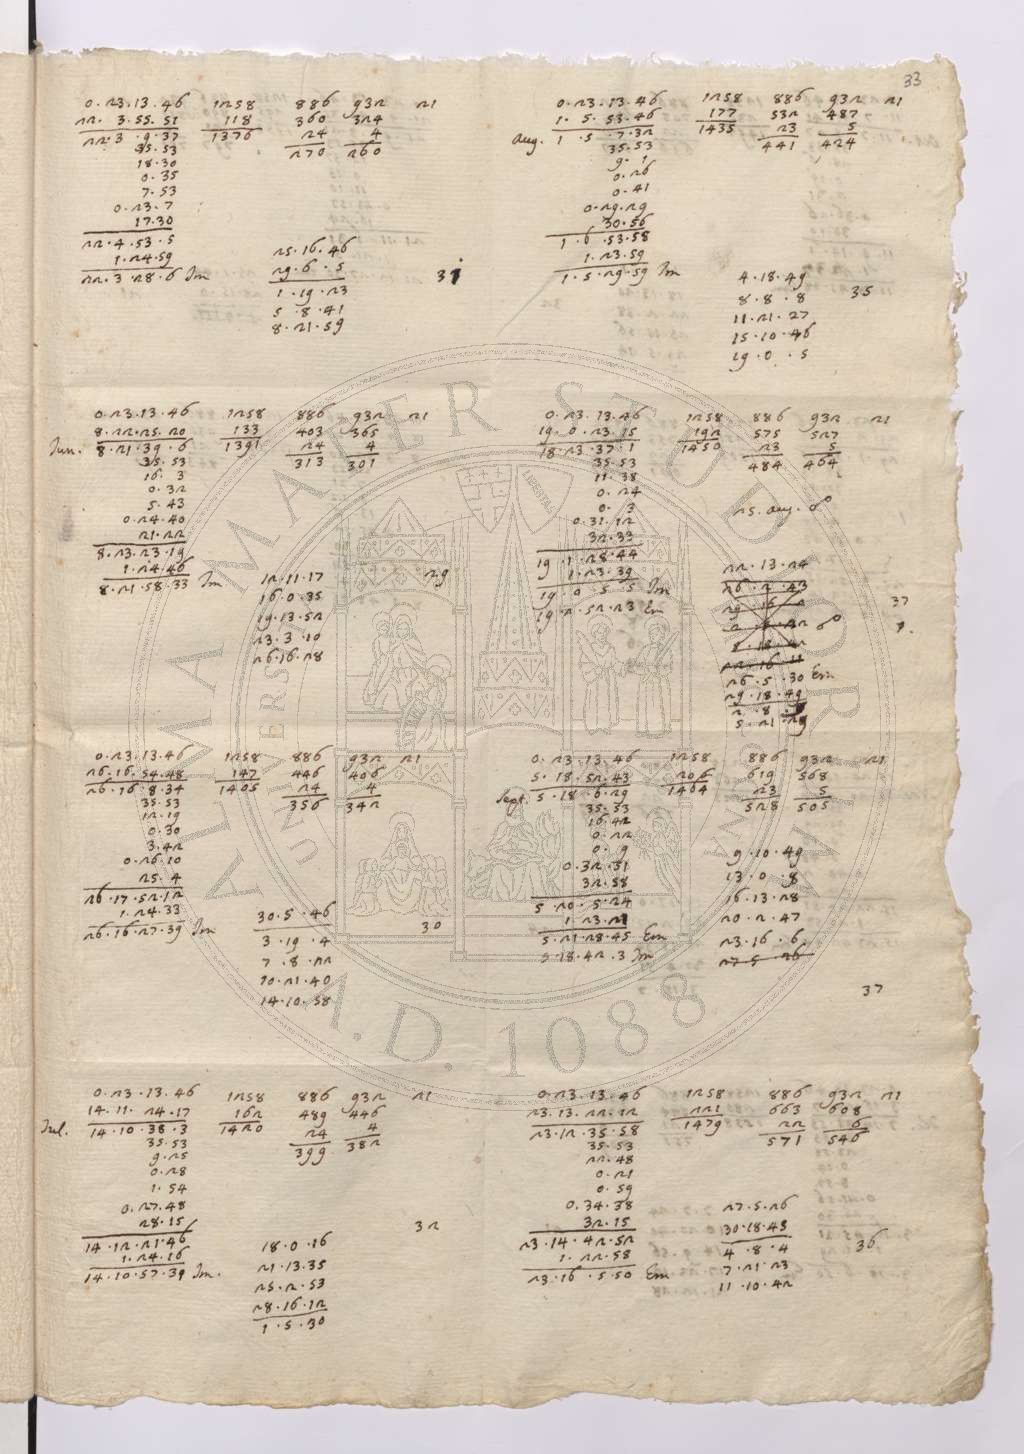 33
0.23.13.46 1258 886 932 21
22. 3.55.51 118 360 324
22.3.9.37 1376 24 4
35.53 270 260
18.30
0.35
7.53
0.23.7
17.30
22.4.53.5
1.24.59
22.3.28.6 Im
25.16.46
29.6.5
1.19.23
5.8.41
8.21.59
31
0.23.13.46 1258 886 932 21
8.22.25.20 133 403 365
Jun. 8.21.39.6 1391 24 4
35.53 313 301
16.3
0.32
5.43
0.24.40
21.22
8.23.23.19
1.24.46
8.21.58.33 Im
12.11.17
16.0.35
19.13.52
23.3.10
26.16.28
29
0.23.13.46 1258 886 932 21
26.16.54.48 147 446 406
26.16.8.34 1405 24 4
35.53 356 342
12.19
0.30
3.42
0.26.10
25.4
26.17.52.12
1.24.33
26.16.27.39 Im
30.5.46
3.19.4
7.8.22
10.21.40
14.10.58
30
0.23.13.46 1258 886 932 21
14.11.24.17 162 489 446
Jul. 14.10.38.3 1420 24 4
35.53 399 382
9.25
0.28
1.54
0.27.48
28.15
14.12.21.46
1.24.16
14.10.57.39 Im.
18.0.16
21.13.35
25.2.53
28.16.12
1.5.30
32
0.23.13.46 1258 886 932 21
1.5.53.46 177 532 487
Aug. 1.5.7.32 1435 23 5
35.53 441 424
9.1
0.26
0.41
0.29.29
30.56
1.6.53.58
1.23.59
1.5.29.59 Im
4.18.49
8.8.8
11.21.27
15.10.46
19.0.5
35
0.23.13.46 1258 886 932 21
19.0.23.15 192 575 527
18.23.37.1 1450 23 5
35.53 484 464
11.38
0.24
0.3
0.31.12
32.33
19.1.28.44
1.23.39
19.0.5.5 Im
19.2.52.23 Em
25. aug. ☍
22.13.24
26.5.30 Em
29.18.49
37
0.23.13.46 1258 886 932 21
5.18.52.43 206 619 568
Sept. 5.18.6.29 1464 23 5
35.53 528 505
16.42
0.22
0.9
0.32.31
32.58
5.20.5.24
5.21.28.45 Em
5.18.42.3 Im
9.10.49
13.0.8
16.13.28
20.2.47
23.16.6
27.5.26
37
0.23.13.46 1258 886 932 21
23.13.22.12 221 663 608
23.12.35.58 1479 22 6
35.53 571 546
22.48
0.21
0.59
0.34.38
32.15
23.14.42.52
1.22.58
23.16.5.50 Em
27.5.26
30.18.45
4.8.4
7.21.23
11.10.42
36
ALMA MATER STUDIORUM
A.D. 1088